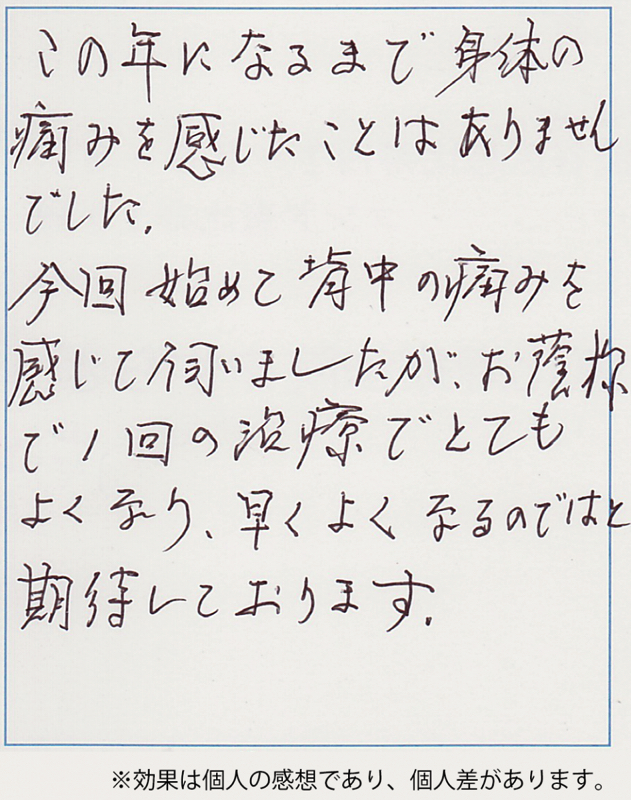 この年になるまで身体の
痛みを感じたことはありません
でした。
今回始めて背中の痛みを
感じて伺いましたが、お蔭様
で1回の治療でとても
よくなり、早くよくなるのではと
期待しております。
※効果は個人の感想であり、個人差があります。